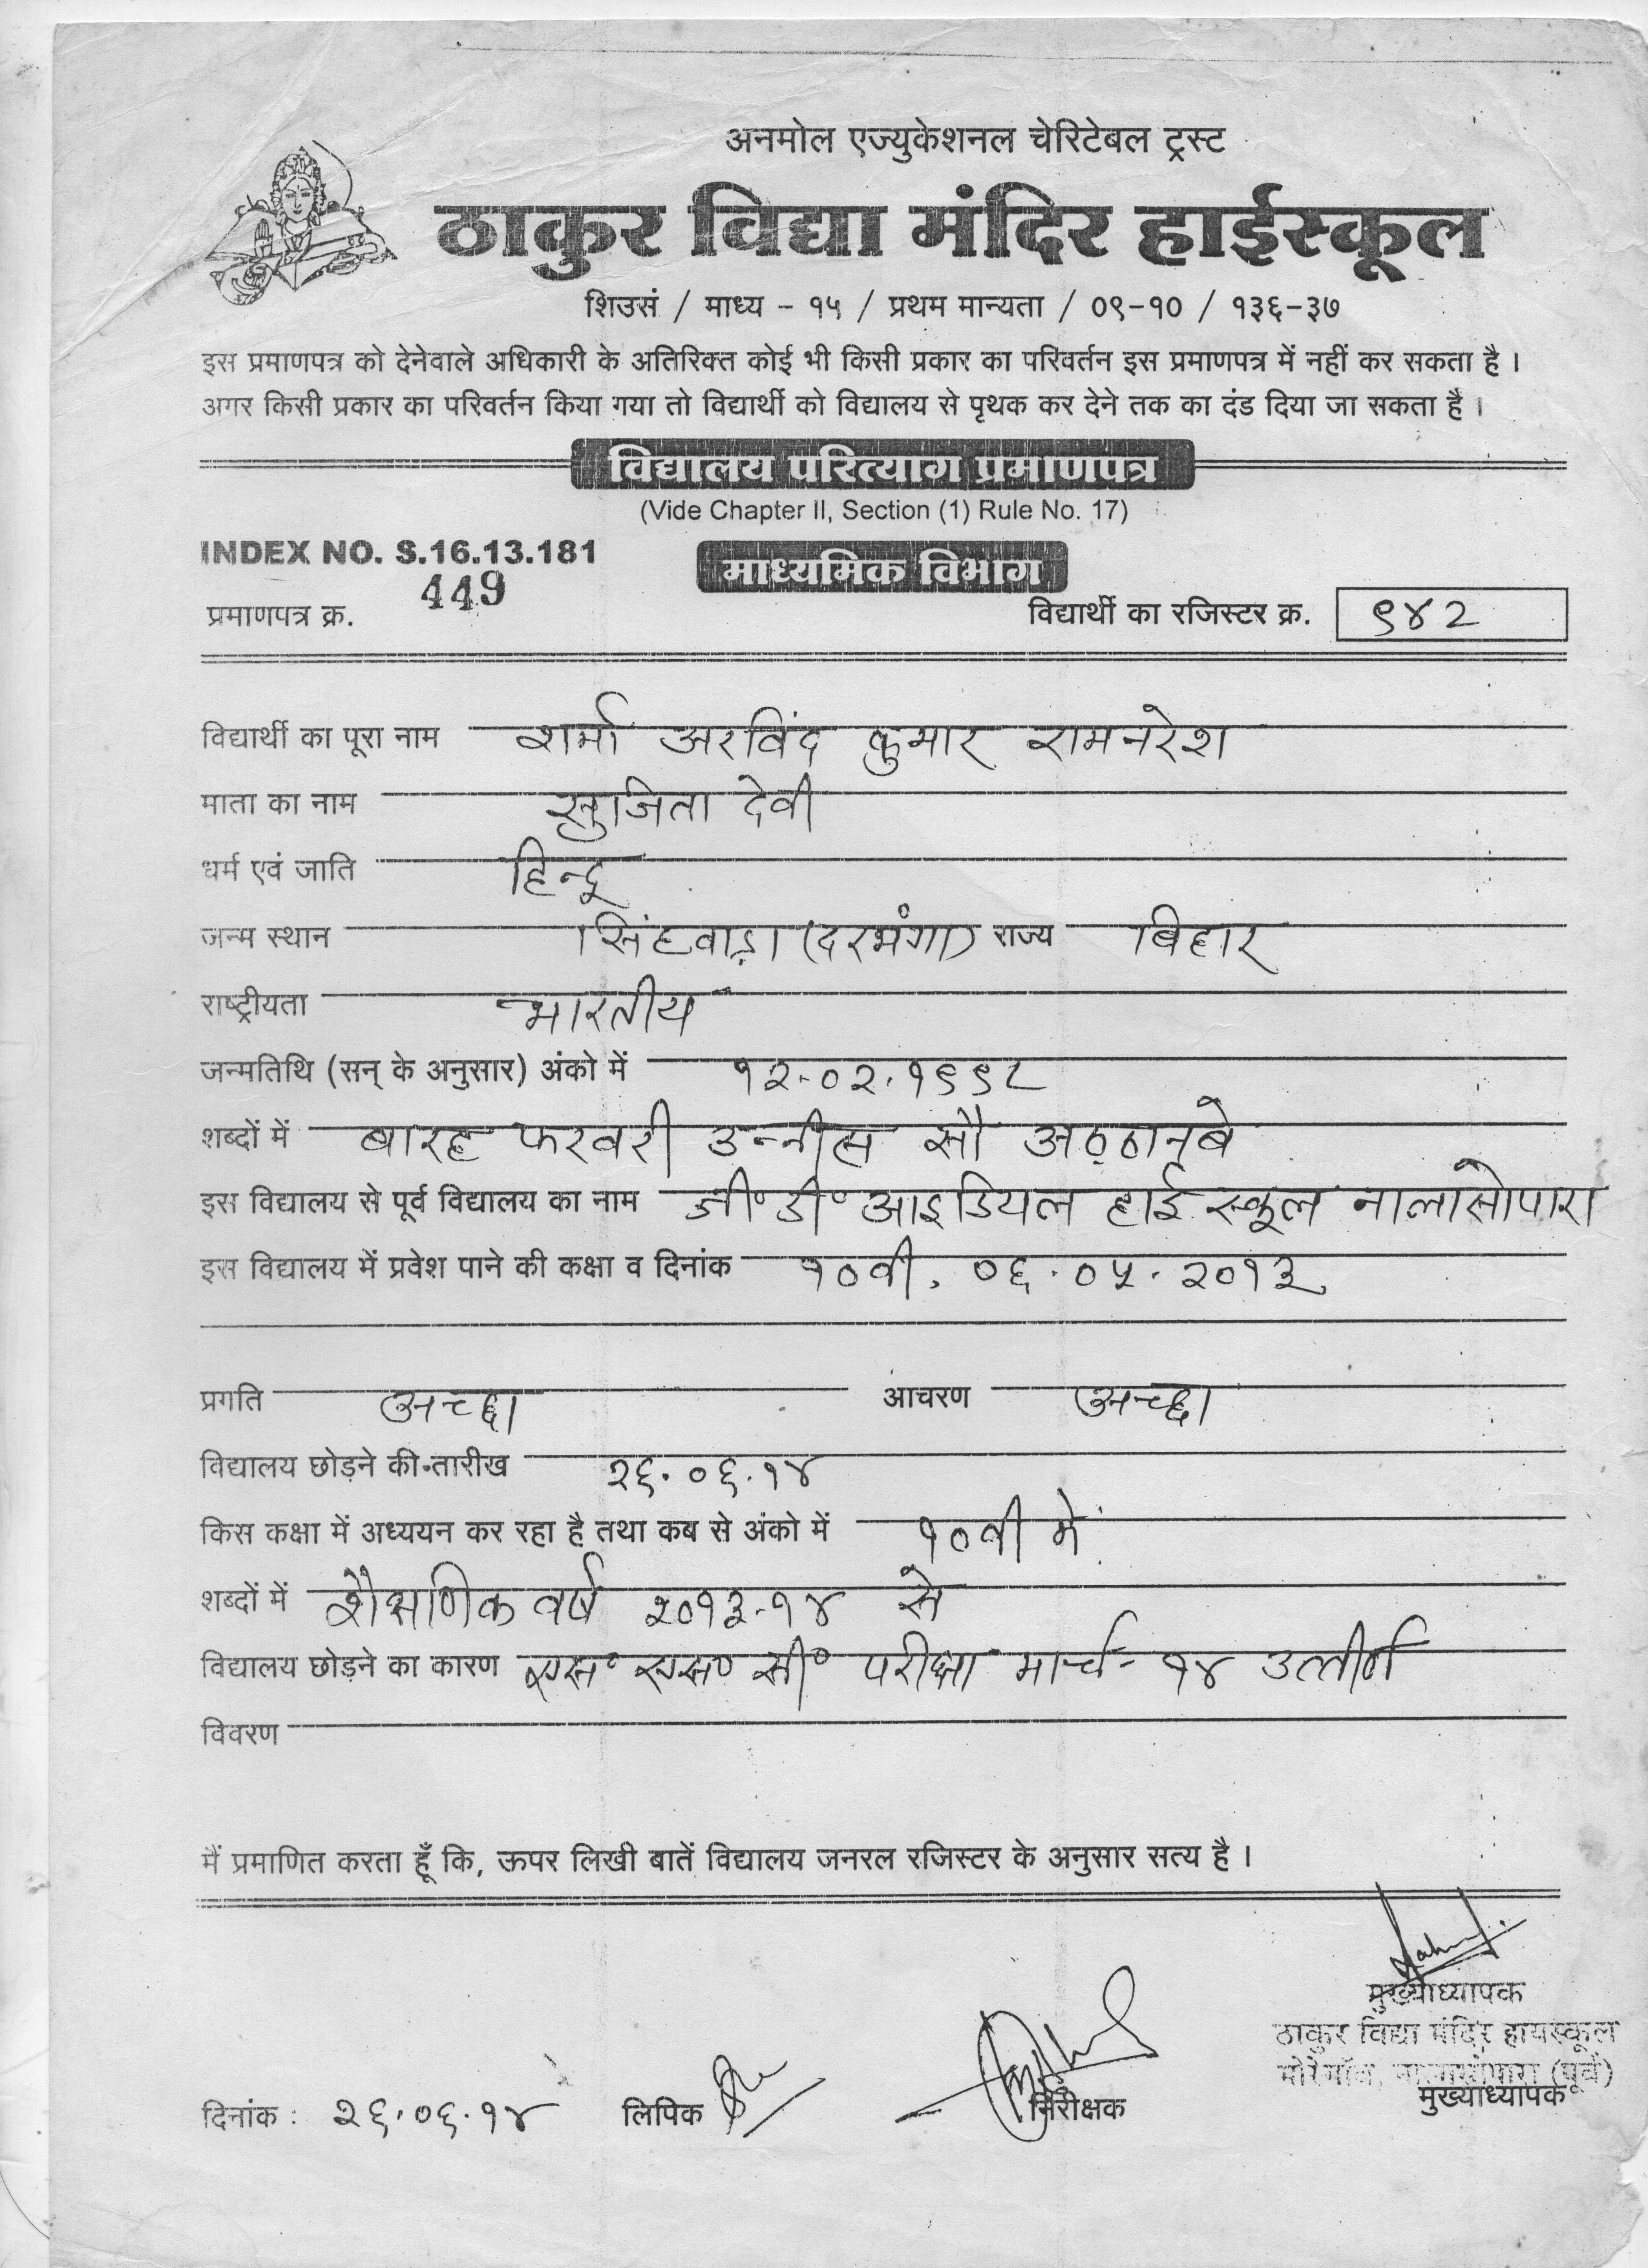 अनमोल एज्युकेशनल चेरिटेबल ट्रस्ट
ठाकुर विद्या मंदिर हाईस्कूल
शिउसं / माध्य - १५ / प्रथम मान्यता / ०९-१० / १३६-३७
इस प्रमाणपत्र को देनेवाले अधिकारी के अतिरिक्त कोई भी किसी प्रकार का परिवर्तन इस प्रमाणपत्र में नहीं कर सकता है ।
अगर किसी प्रकार का परिवर्तन किया गया तो विद्यार्थी को विद्यालय से पृथक कर देने तक का दंड दिया जा सकता है ।
विद्यालय परित्याग प्रमाणपत्र
(Vide Chapter II, Section (1) Rule No. 17)
INDEX NO. S.16.13.181
माध्यमिक विभाग
प्रमाणपत्र क्र. 449 विद्यार्थी का रजिस्टर क्र. ९४२
विद्यार्थी का पूरा नाम शर्मा अरविंद कुमार रामनरेश
माता का नाम सुजिता देवी
धर्म एवं जाति हिन्दू
जन्म स्थान सिंहवाड़ा (दरभंगा) राज्य बिहार
राष्ट्रीयता भारतीय
जन्मतिथि (सन् के अनुसार) अंको में १२.०२.१९९८
शब्दों में बारह फरवरी उन्नीस सौ अठ्ठानबे
इस विद्यालय से पूर्व विद्यालय का नाम जी॰ डी॰ आइडियल हाई स्कूल नालासोपारा
इस विद्यालय में प्रवेश पाने की कक्षा व दिनांक १०वी, ०६.०५.२०१३
प्रगति अच्छा आचरण अच्छा
विद्यालय छोड़ने की तारीख २६.०६.१४
किस कक्षा में अध्ययन कर रहा है तथा कब से अंको में १०वी में
शब्दों में शैक्षणिक वर्ष २०१३-१४ से
विद्यालय छोड़ने का कारण एस॰ एस॰ सी॰ परीक्षा मार्च - १४ उत्तीर्ण
विवरण
मैं प्रमाणित करता हूँ कि, ऊपर लिखी बातें विद्यालय जनरल रजिस्टर के अनुसार सत्य है ।
मुख्याध्यापक
ठाकुर विद्या मंदिर हायस्कूल
नालासोपारा (पूर्व)
दिनांक : २६.०६.१४ लिपिक निरीक्षक मुख्याध्यापक